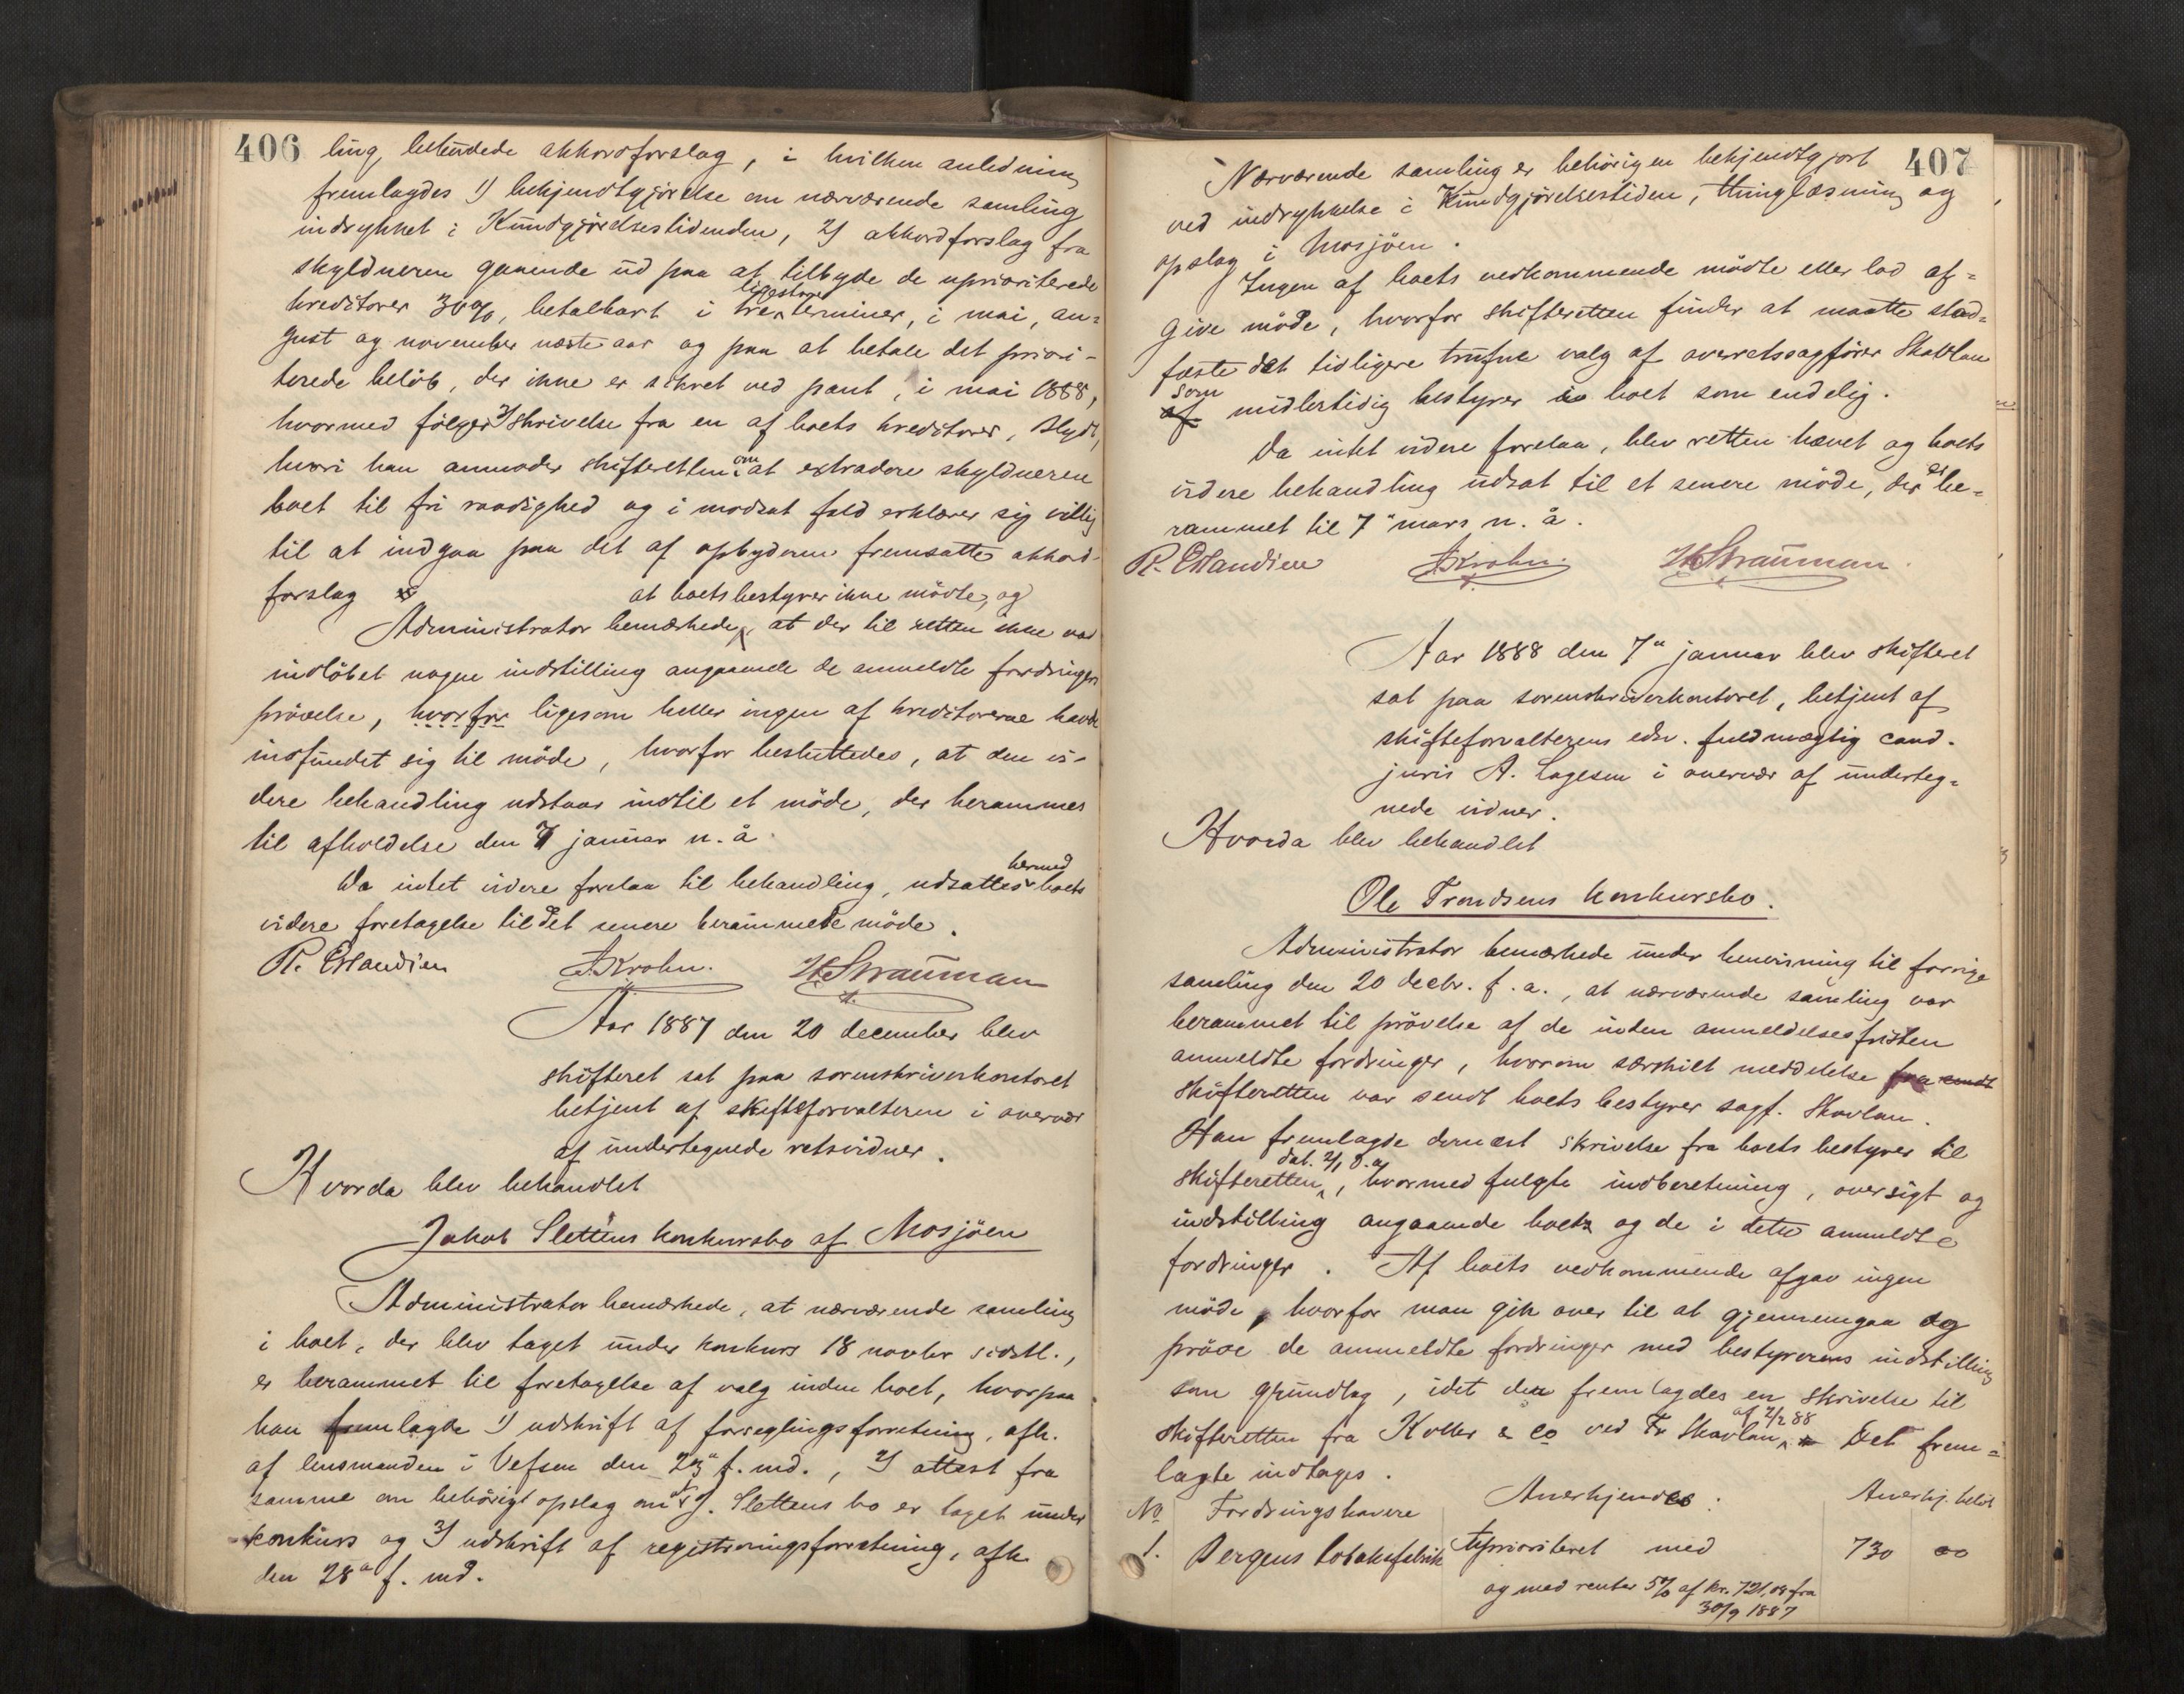 406
ling, bebudede akkordforslag, i hvilken anledning
fremlagdes 1) bekjendtgjørelse om nærværende samling
indrykket i Kundgjørelsestidenden, 2) akkordforslag fra
skyldneren gaaende ud paa at tilbyde de uprioriterede
kreditorer 30%, betalbart i tre ligestore terminer, i mai, au=
gust og november næste aar og paa at betale det priori-
terede beløb, der ikke er sikret ved pant, i mai 1888,
hvormed følger 3) skrivelse fra en af boets kreditorer,
hvori han anmoder skifteretten om at extradere skyldneren
boet til fri raadighed og i modsat fald erklærer sig villig
til at indgaa paa det af opbyderen fremsatte akkord-
forslag
Administrator bemærkede, at boets bestyrer ikke mødte, og at der til retten ikke var
indløbet nogen indstilling angaaende de anmeldte fordringers
prøvelse, hvorfor ligesom heller ingen af kreditorerne havde
indfundet sig til møde, hvorfor besluttedes, at den vi-
dere behandling udstaar indtil et møde, der berammes
til afholdelse den 7 januar n. å.
Da intet videre forelaa til behandling, udsattes hermed boets
videre foretagelse til det senere berammede møde.
R. Erlandsen A. Krohn. H. Strauman
Aar 1887 den 20 december blev
skifteret sat paa sorenskriverkontoret
betjent af skifteforvalteren i overvær
af undertegnede retsvidner.
Hvorda blev behandlet
Jakob Slettens konkursbo af Mosjøen
Administrator bemærkede, at nærværende samling
i boet, der blev taget under konkurs 18 novbr sidstl.,
er berammet til foretagelse af valg inden boet, hvorpaa
han fremlagde 1) udskrift af forseglingsforretning, afh.
af lensmanden i Vefsen den 23" f. md., 2) attest fra
samme om behørigt opslag om at J. Slettens bo er taget under
konkurs og 3) udskrift af registreringsforretning, afh.
den 28" f. md.
407
Nærværende samling er behørigen bekjendtgjort
ved indrykkelse i Kundgjørelsestiden, thinglæsning og
opslag i Mosjøen.
Ingen af boets vedkommende mødte eller lod af=
give møde, hvorfor skifteretten finder at maatte stad=
fæste det tidligere trufne valg af overretssagfører Skavlan
som midlertidig bestyrer i boet som endelig.
Da intet videre forelaa, blev retten hævet og boets
videre behandling udsat til et senere møde, der er be=
rammet til 7" mars n. å.
R. Erlandsen A. Krohn. H. Strauman.
Aar 1888 den 7" januar blev skifteret
sat paa sorenskriverkontoret, betjent af
skifteforvalterens edsv. fuldmægtig cand.
juris A. Lagesen i overvær af underteg=
nede vidner.
Hvorda blev behandlet
Ole Trondsens konkursbo.
Administrator bemærkede under henvisning til forrige
samling den 20 decbr. f. a., at nærværende samling var
berammet til prøvelse af de inden anmeldelsesfristen
anmeldte fordringer, hvorom særskilt meddelelse fra
skifteretten var sendt boets bestyrer sagf. Skavlan.
Han fremlagde dernæst skrivelse fra boets bestyrer til
skifteretten dat. 2/1 d. a., hvormed fulgte indberetning, oversigt og
indstilling angaaende boet og de i dette anmeldte
fordringer. Af boets vedkommende afgav ingen
møde, hvorfor man gik over til at gjennemgaa og
prøve de anmeldte fordringer med bestyrerens indstilling
som grundlag, idet der fremlagdes en skrivelse til
skifteretten fra Koller & Co ved Fr Skavlan af 2/2 88 Det frem=
lagte indtages.
No Fordringshavere Anerkjendes: Anerkj. beløb
1. Bergens tobaksfabrik Uprioriteret med 730 00
og med renter 5% af kr. 721,09 fra
30/9 1887